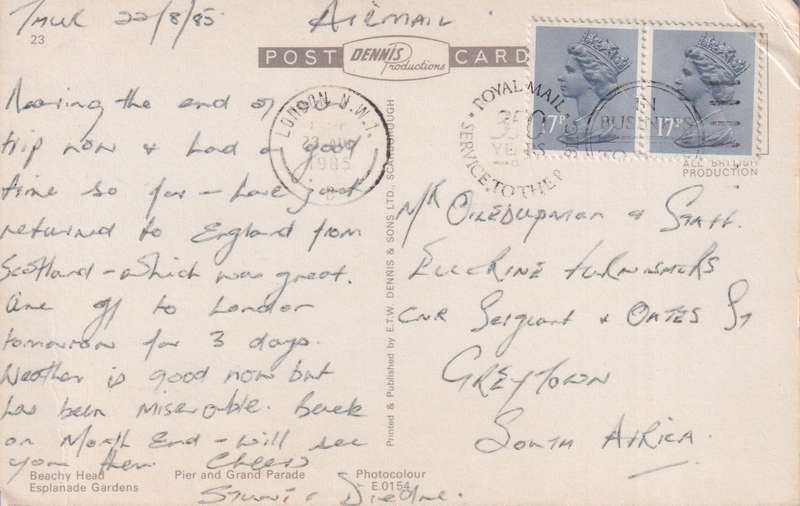 Thur 22/8/85
AIRMAIL.
23
POST
DENNIS
Productions
CARD
Nearing the end of
trip now & had a good
time so far - have just
returned to England from
Scotland - which was great.
are off to London
tomorrow for 3 days.
Weather is good now but
has been miserable. Back
on Month End - will see
you then. Cheers
LONDON N.W.1.
1985
ROYAL MAIL
350
YEARS
SERVICE TO THE
IN
BUSIN
17P
17P
ALL BRITISH
PRODUCTION
Printed & Published by E.T.W. DENNIS & SONS LTD., SCARBOROUGH
Mr & Staff.
FURNISHERS
CNR Sergeant & OATES ST
GREYTOWN
SOUTH AFRICA.
Beachy Head
Esplanade Gardens
Pier and Grand Parade
Photocolour
E.0154